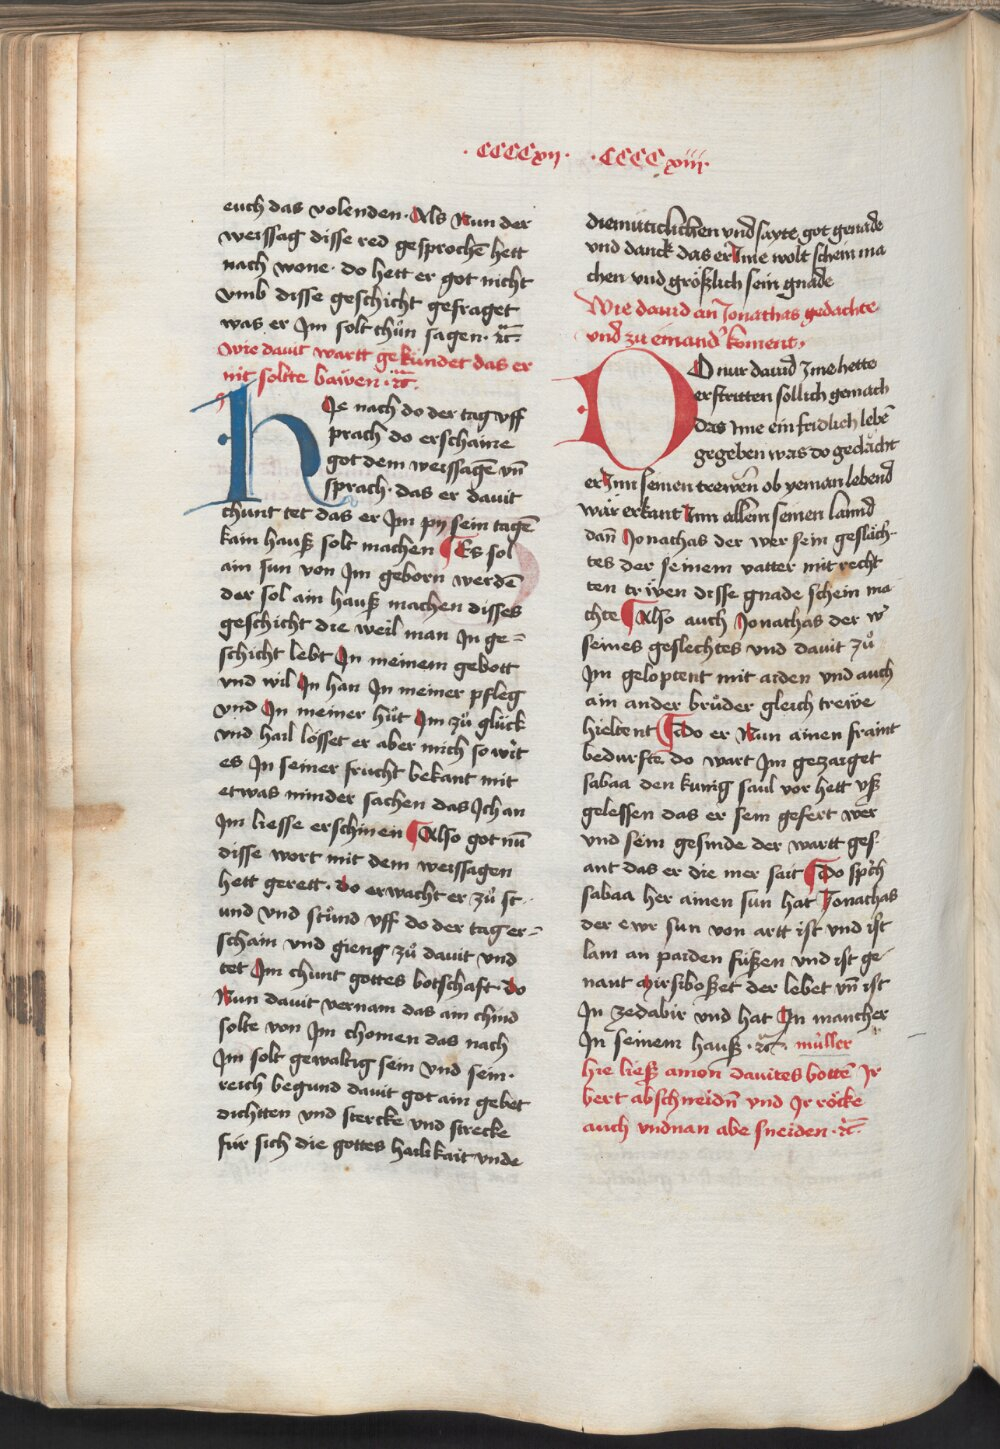 · CCCCxvij · · CCCCxviij ·
euch das volenden · Als Nun der
weissag disse red gesprochē hett
nach wone · do hett er got nicht
vmb disse geschicht gefraget
was er Jm solt thůn sagen · ⁊c̃ ·
wie dauit wartt gekundet das er
nit soltte bawen · ⁊c̃ ·
hJe nach do der tag vff
prach do erschaine
got dem weissagē vn̄
sprach · das er dauit
chunt tet das er Jm pÿ sein tagē
kain hauß solt machen ¶ Es sol
ain sun von Jm geborn werdē
der sol ain hauß machen disses
geschicht die weil man Jn ge=
schicht lebt Jn meinem gebott
vnd wil Jn han Jn meiner pfleg
vnd Jn meiner hůt Jm zů glück
vnd hail losset er aber mich so wirt
es Jn seiner frucht bekant mit
etwas minder sachen das Jch an
Jm liesse erschinen ¶ Also got nū
disse wort mit dem weissagen
hett gerett · do erwacht er zů st
und vnd stůnd vff do der tag er=
schain vnd gieng zů dauit vnd
tet Jm chunt gottes botschaft · do
Nun dauit vernam das ain chind
solte von Jm chomen das nach
Jm solt gewaltig sein vnd sein ·
reich begund dauit got ain gebet
dichtten vnd stercke vnd strecke
für sich die gottes hailikait vnde
diemüticlichen vnd sayte got genade
vnd danck das er Jme wolt schein ma
chen vnd größlich sein gnade
Wie dauid an Jonathas gedachte
vnd zu einand' koment ·
DO nur dauid Jme hette
erstritten sollich gemach
das Jme ein fridlich lebē
gegeben was do gedächt
er Jnn seinen trewen ob yeman lebend
wär erkant Jnn allem seinen lannd
dañ Jonathas der wer sein gesläch
tes der seinem vatter mit recht
ten trẅen disse gnade schein ma
chte ¶ Also auch Jonathas der w'
seines geslechtes vnd dauit zů
Jm geloptent mit aiden vnd auch
ain ander brůder gleich trewe
hieltent ¶ do er Nun ainen fraint
bedurfte do wart Jm gezaiget
sabaa den kunig saul vor hett vß
gelessen das er sein gefert wer
vnd sein gesinde der wartt ges
ant das er die mer sait ¶ do sprch
sabaa her ainen sun hat Jonathas
der ewr sun von artt ist vnd ist
lam an paiden füßen vnd ist ge
nant Mirsiboßet der lebet vn̄ ist
Jn zedabir vnd hat Jn mancher
Jn seinem hauß · ⁊c̃ · müller
hie ließ amon dauites bottē Jr
bert abschneidn̄ vnd Jr röcke
auch vndnan abe sneiden · ⁊c̃ ·